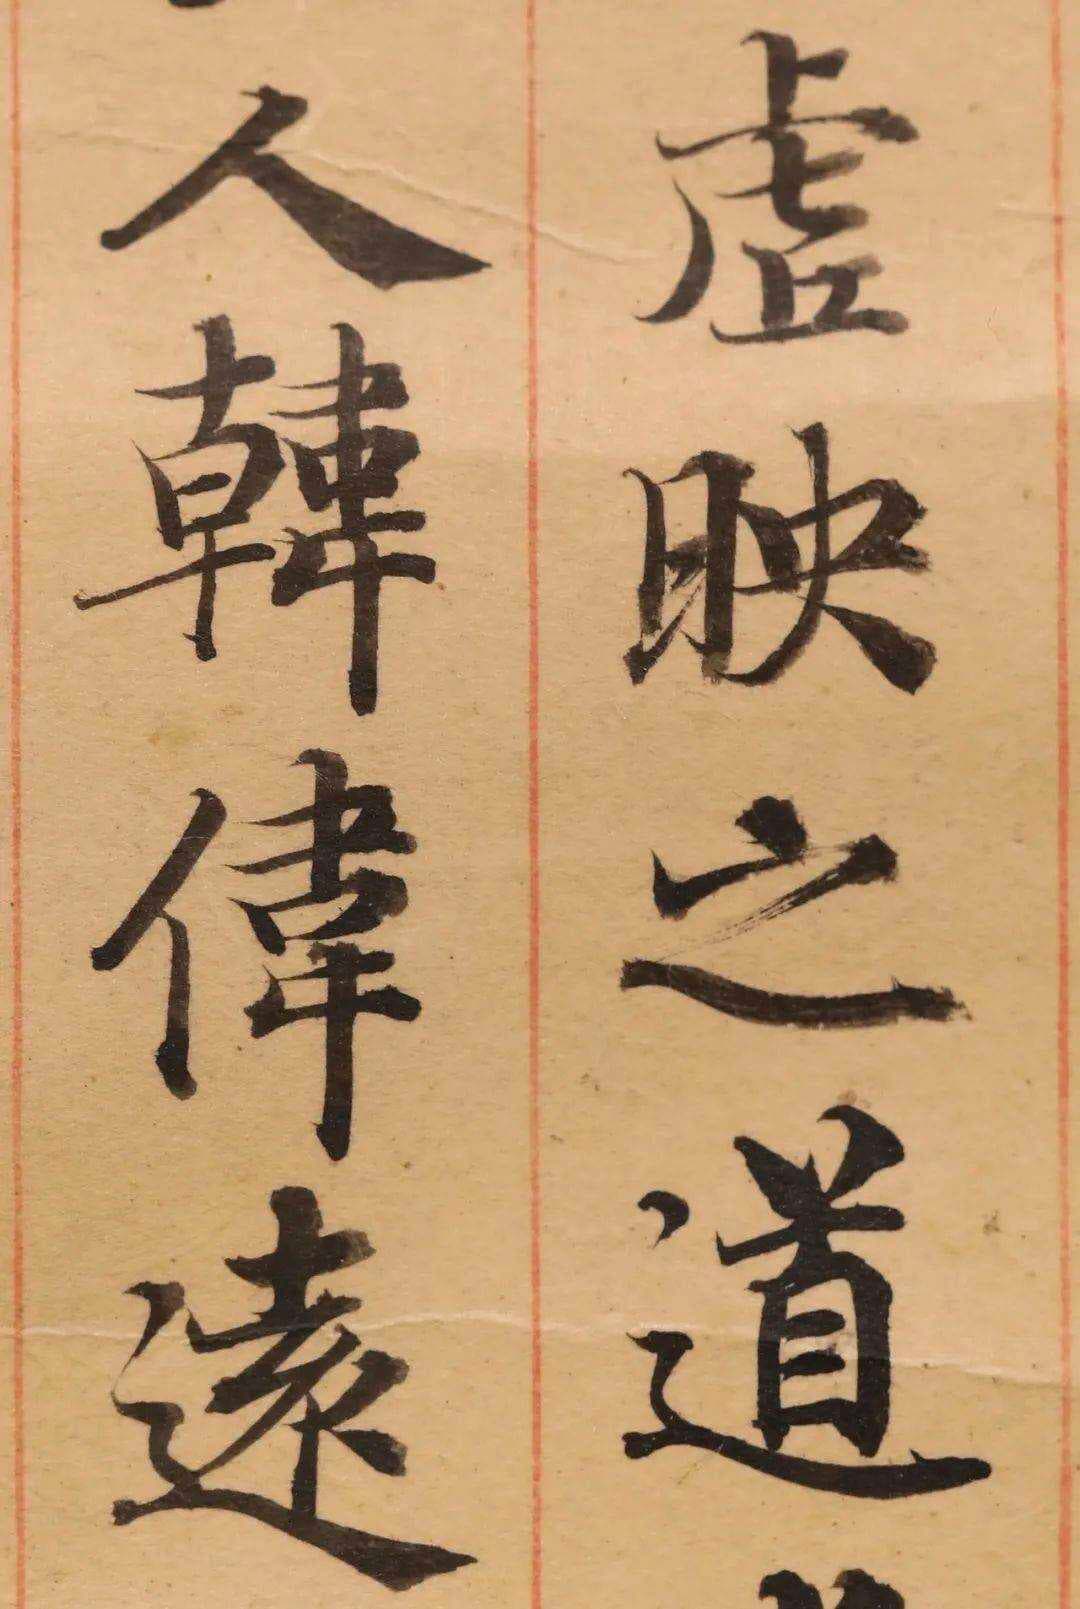 虛映之道
人韓偉遠